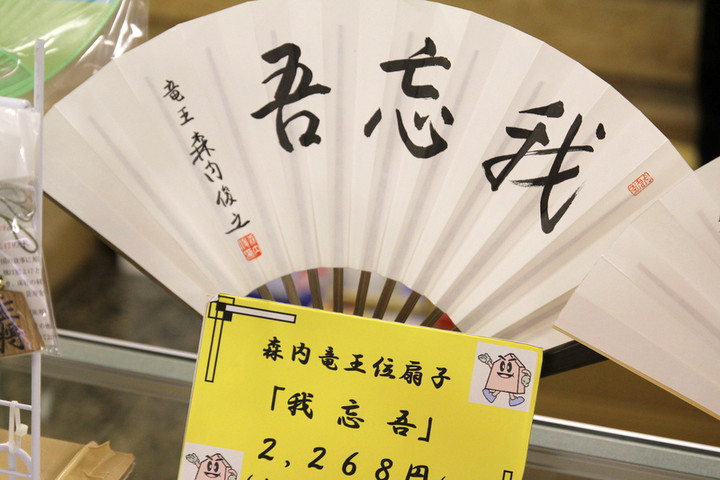 我忘吾
竜王 森内俊之
森内竜王位扇子
「我忘吾」
2,268円